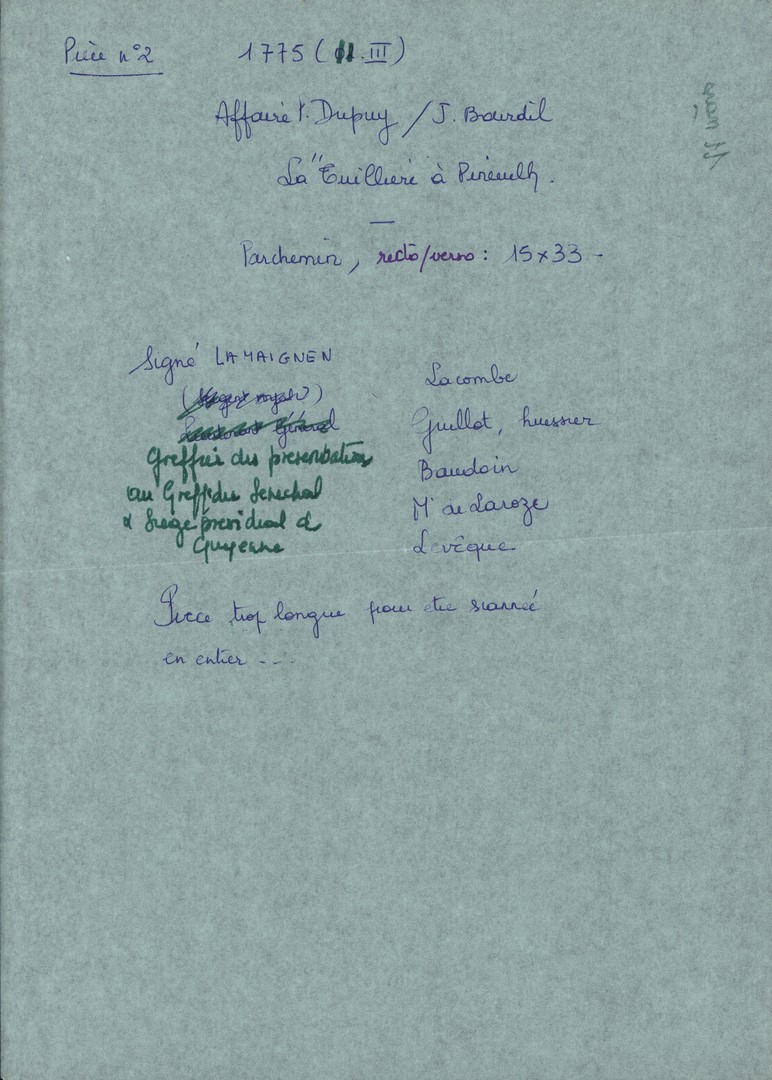 Pièce n°2 1775 (11.III)
Affaire P. Dupuy / J. Bourdil
La "Tuillière à Pineuilh.
Parchemin, recto/verso : 15x33 -
Signé LAMAIGNEN
Greffier des présentations
au Greffe du Sénéchal
& Siège présidial de
Guyenne
Lacombe
Guillot, huissier
Baudoin
Mr de Laroze
Levêque
Pièce trop longue pour être scannée
en entier ----